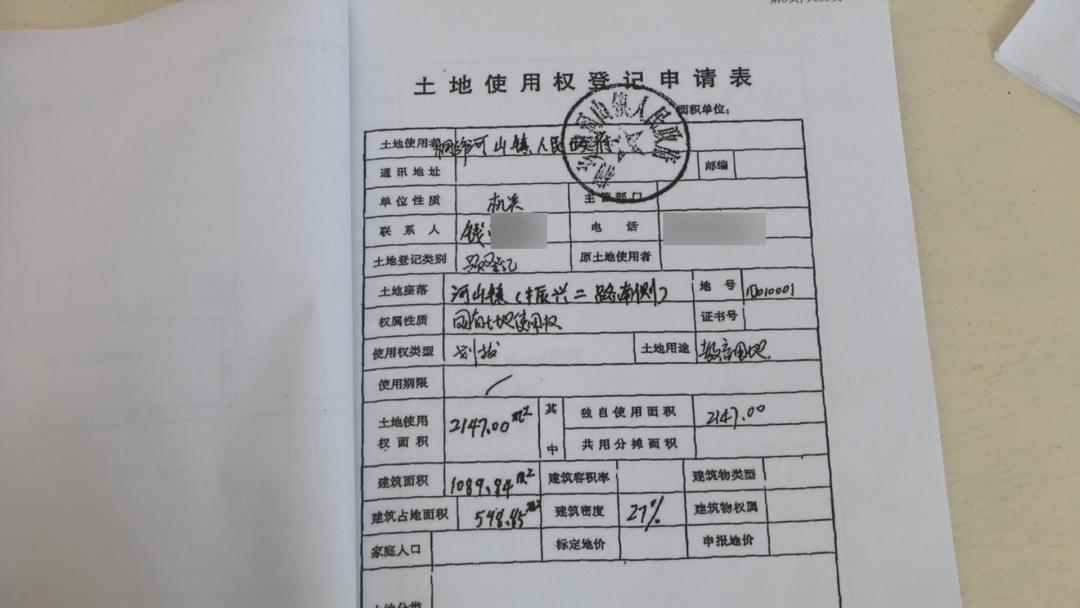 土地使用权登记申请表
面积单位：
土地使用者 河山镇人民政府
通讯地址 邮编
单位性质 机关 主管部门
联系人 钱 电话
土地登记类别 原土地使用者
土地座落 河山镇（振兴二路南侧） 地号
权属性质 国有土地使用权 证书号
使用权类型 划拨 土地用途 教育用地
使用期限 /
土地使用权面积 2147.00m² 其中 独自使用面积 2147.00
共用分摊面积
建筑面积 1089.84m² 建筑容积率 建筑物类型
建筑占地面积 548.85m² 建筑密度 27% 建筑物权属
家庭人口 标定地价 申报地价
土地分类